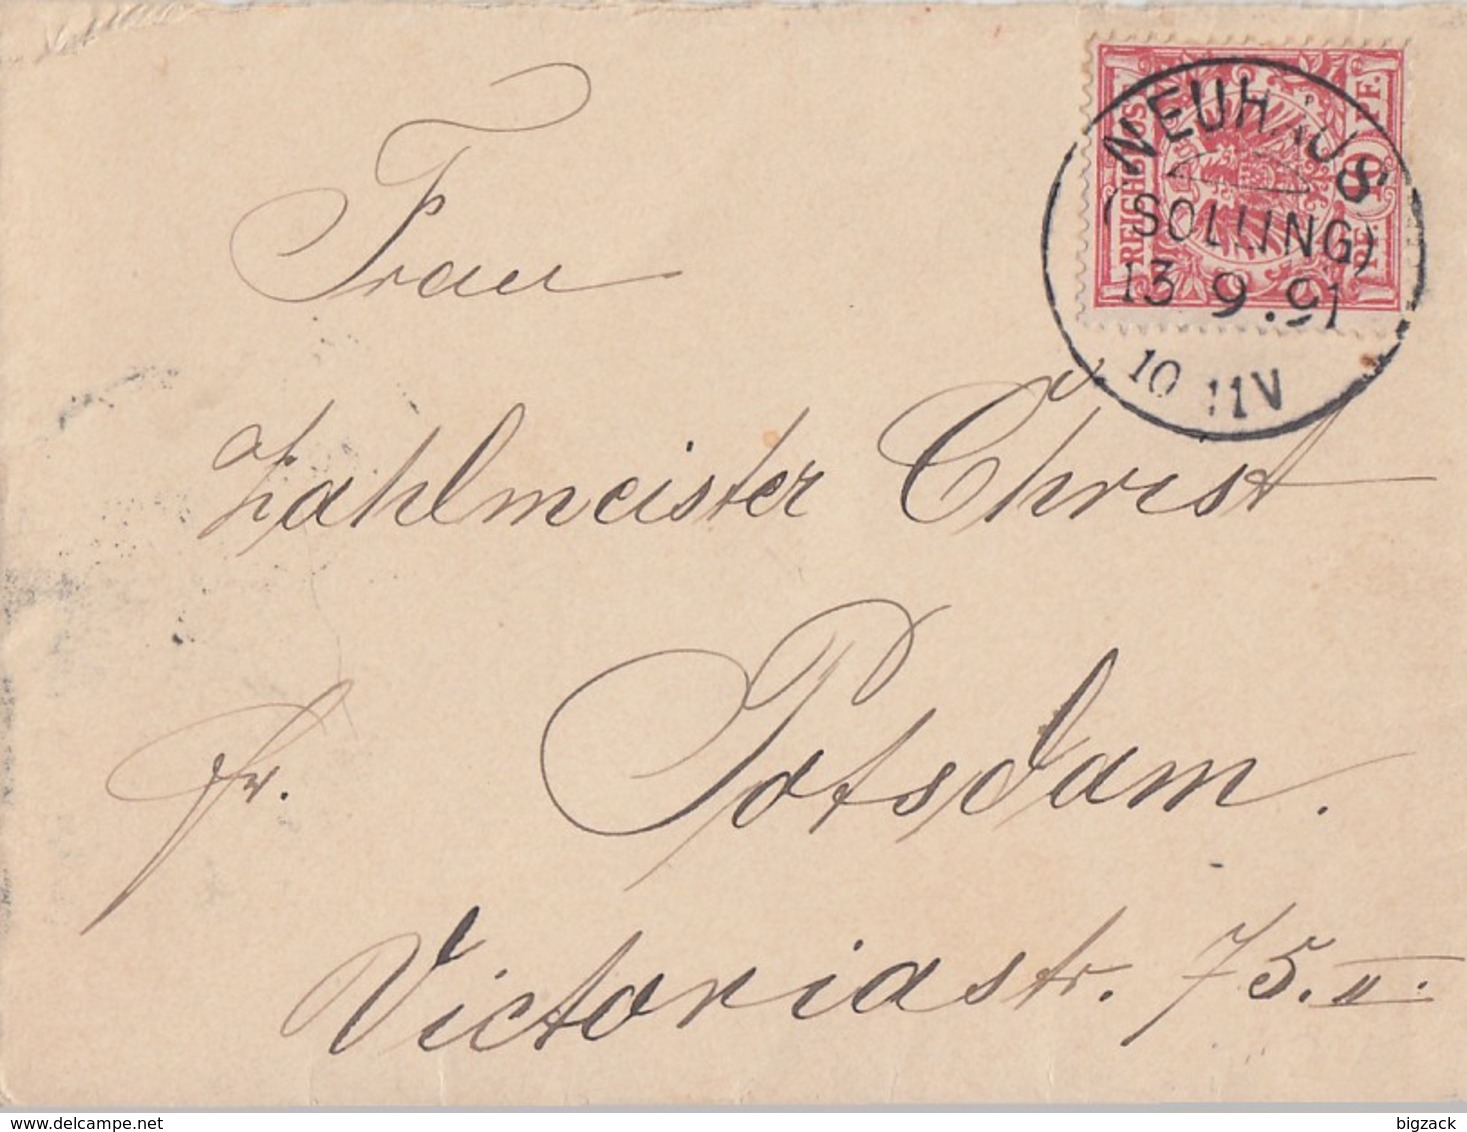 REICHSPOST
10 PF. PF.
NEUHAUS
(SOLLING)
13 9.91
10 11V
Frau
Zahlmeister Christ
fr. Potsdam.
Victoriastr. 75. II.
www.delcampe.net
bigzack